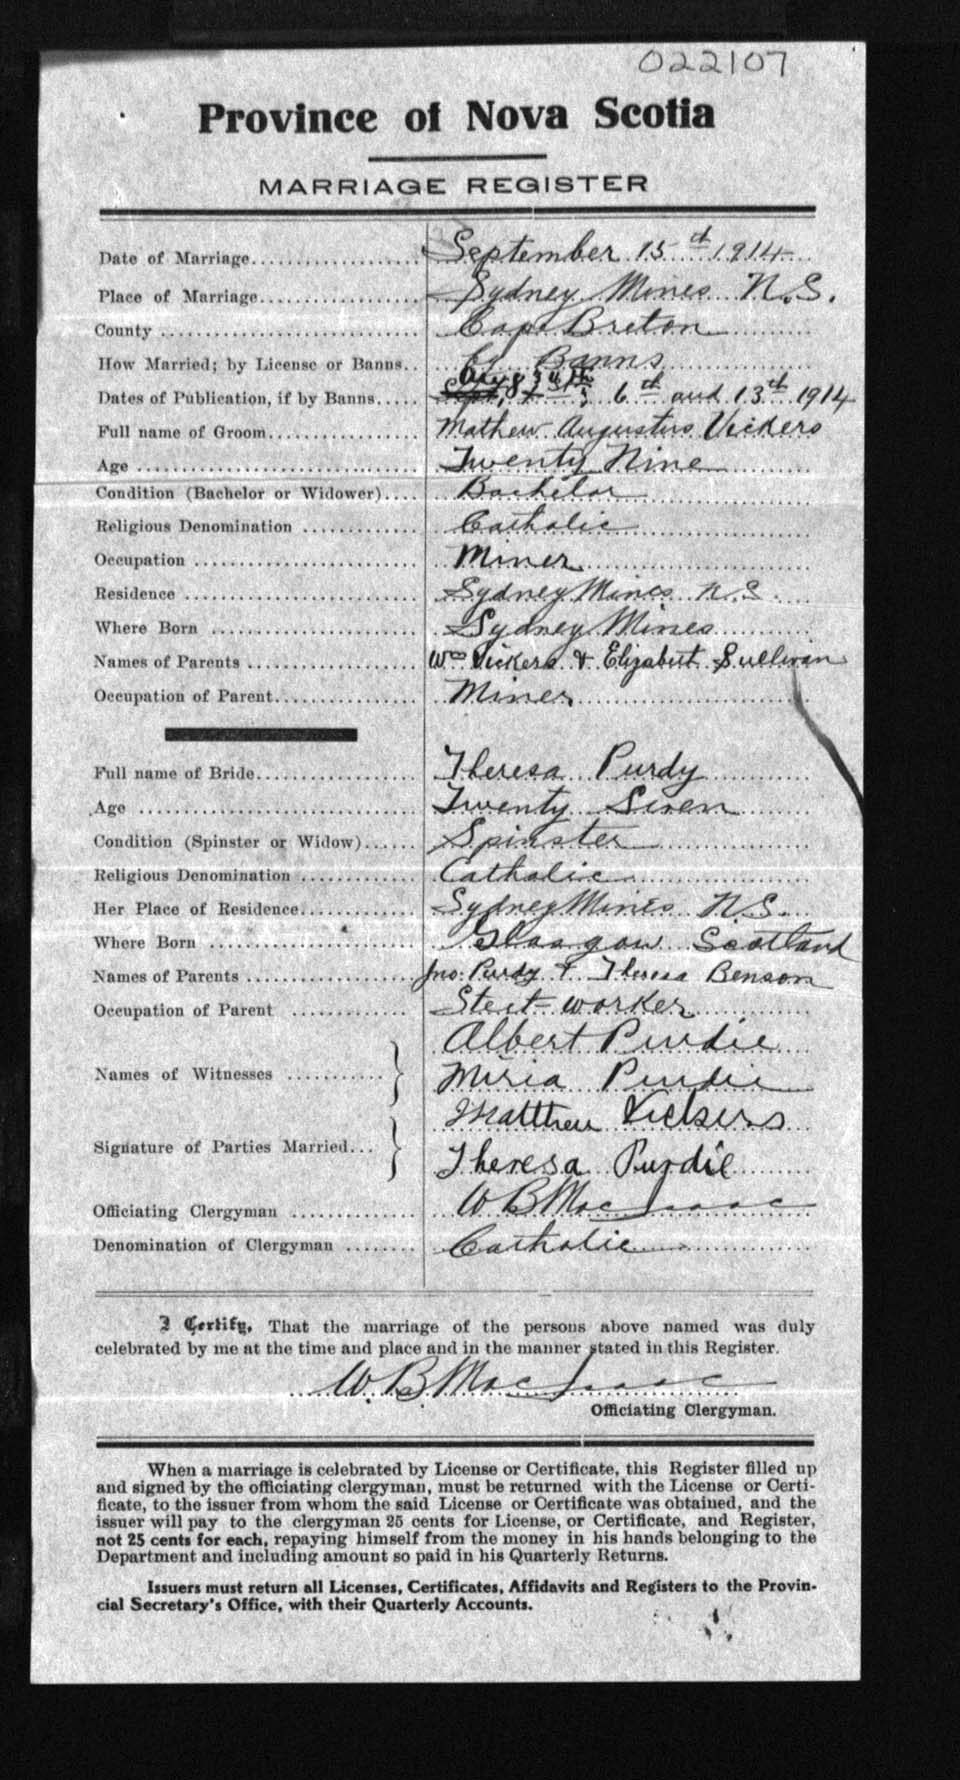 022107
Province of Nova Scotia
MARRIAGE REGISTER
Date of Marriage.................... September 15th 1914
Place of Marriage.................. Sydney Mines N.S.
County ............................. Cape Breton
How Married; by License or Banns.. by Banns
Dates of Publication, if by Banns..... 6th and 13th 1914
Full name of Groom................. Mathew Augustus Vickers
Age ................................ Twenty Nine
Condition (Bachelor or Widower).... Bachelor
Religious Denomination ............. Catholic
Occupation ......................... Miner
Residence .......................... Sydney Mines N.S.
Where Born ......................... Sydney Mines
Names of Parents ................... Wm Vickers & Elizabeth Sullivan
Occupation of Parent................ Miner
Full name of Bride.................. Theresa Purdy
Age ................................ Twenty Seven
Condition (Spinster or Widow)...... Spinster
Religious Denomination ............. Catholic
Her Place of Residence.............. Sydney Mines N.S.
Where Born ......................... Glasgow Scotland
Names of Parents ................... Jno: Purdy & Theresa Benson
Occupation of Parent .............. Steel-worker
Albert Purdie
Names of Witnesses ............ Miria Purdie
Matthew Vickers
Signature of Parties Married... Theresa Purdie
Officiating Clergyman .............. W B MacIsaac
Denomination of Clergyman ........ Catholic
I Certify, That the marriage of the persons above named was duly
celebrated by me at the time and place and in the manner stated in this Register.
W. B. MacIsaac
Officiating Clergyman.
When a marriage is celebrated by License or Certificate, this Register filled up
and signed by the officiating clergyman, must be returned with the License or Certi-
ficate, to the issuer from whom the said License or Certificate was obtained, and the
issuer will pay to the clergyman 25 cents for License, or Certificate, and Register,
not 25 cents for each, repaying himself from the money in his hands belonging to the
Department and including amount so paid in his Quarterly Returns.
Issuers must return all Licenses, Certificates, Affidavits and Registers to the Provin-
cial Secretary's Office, with their Quarterly Accounts.